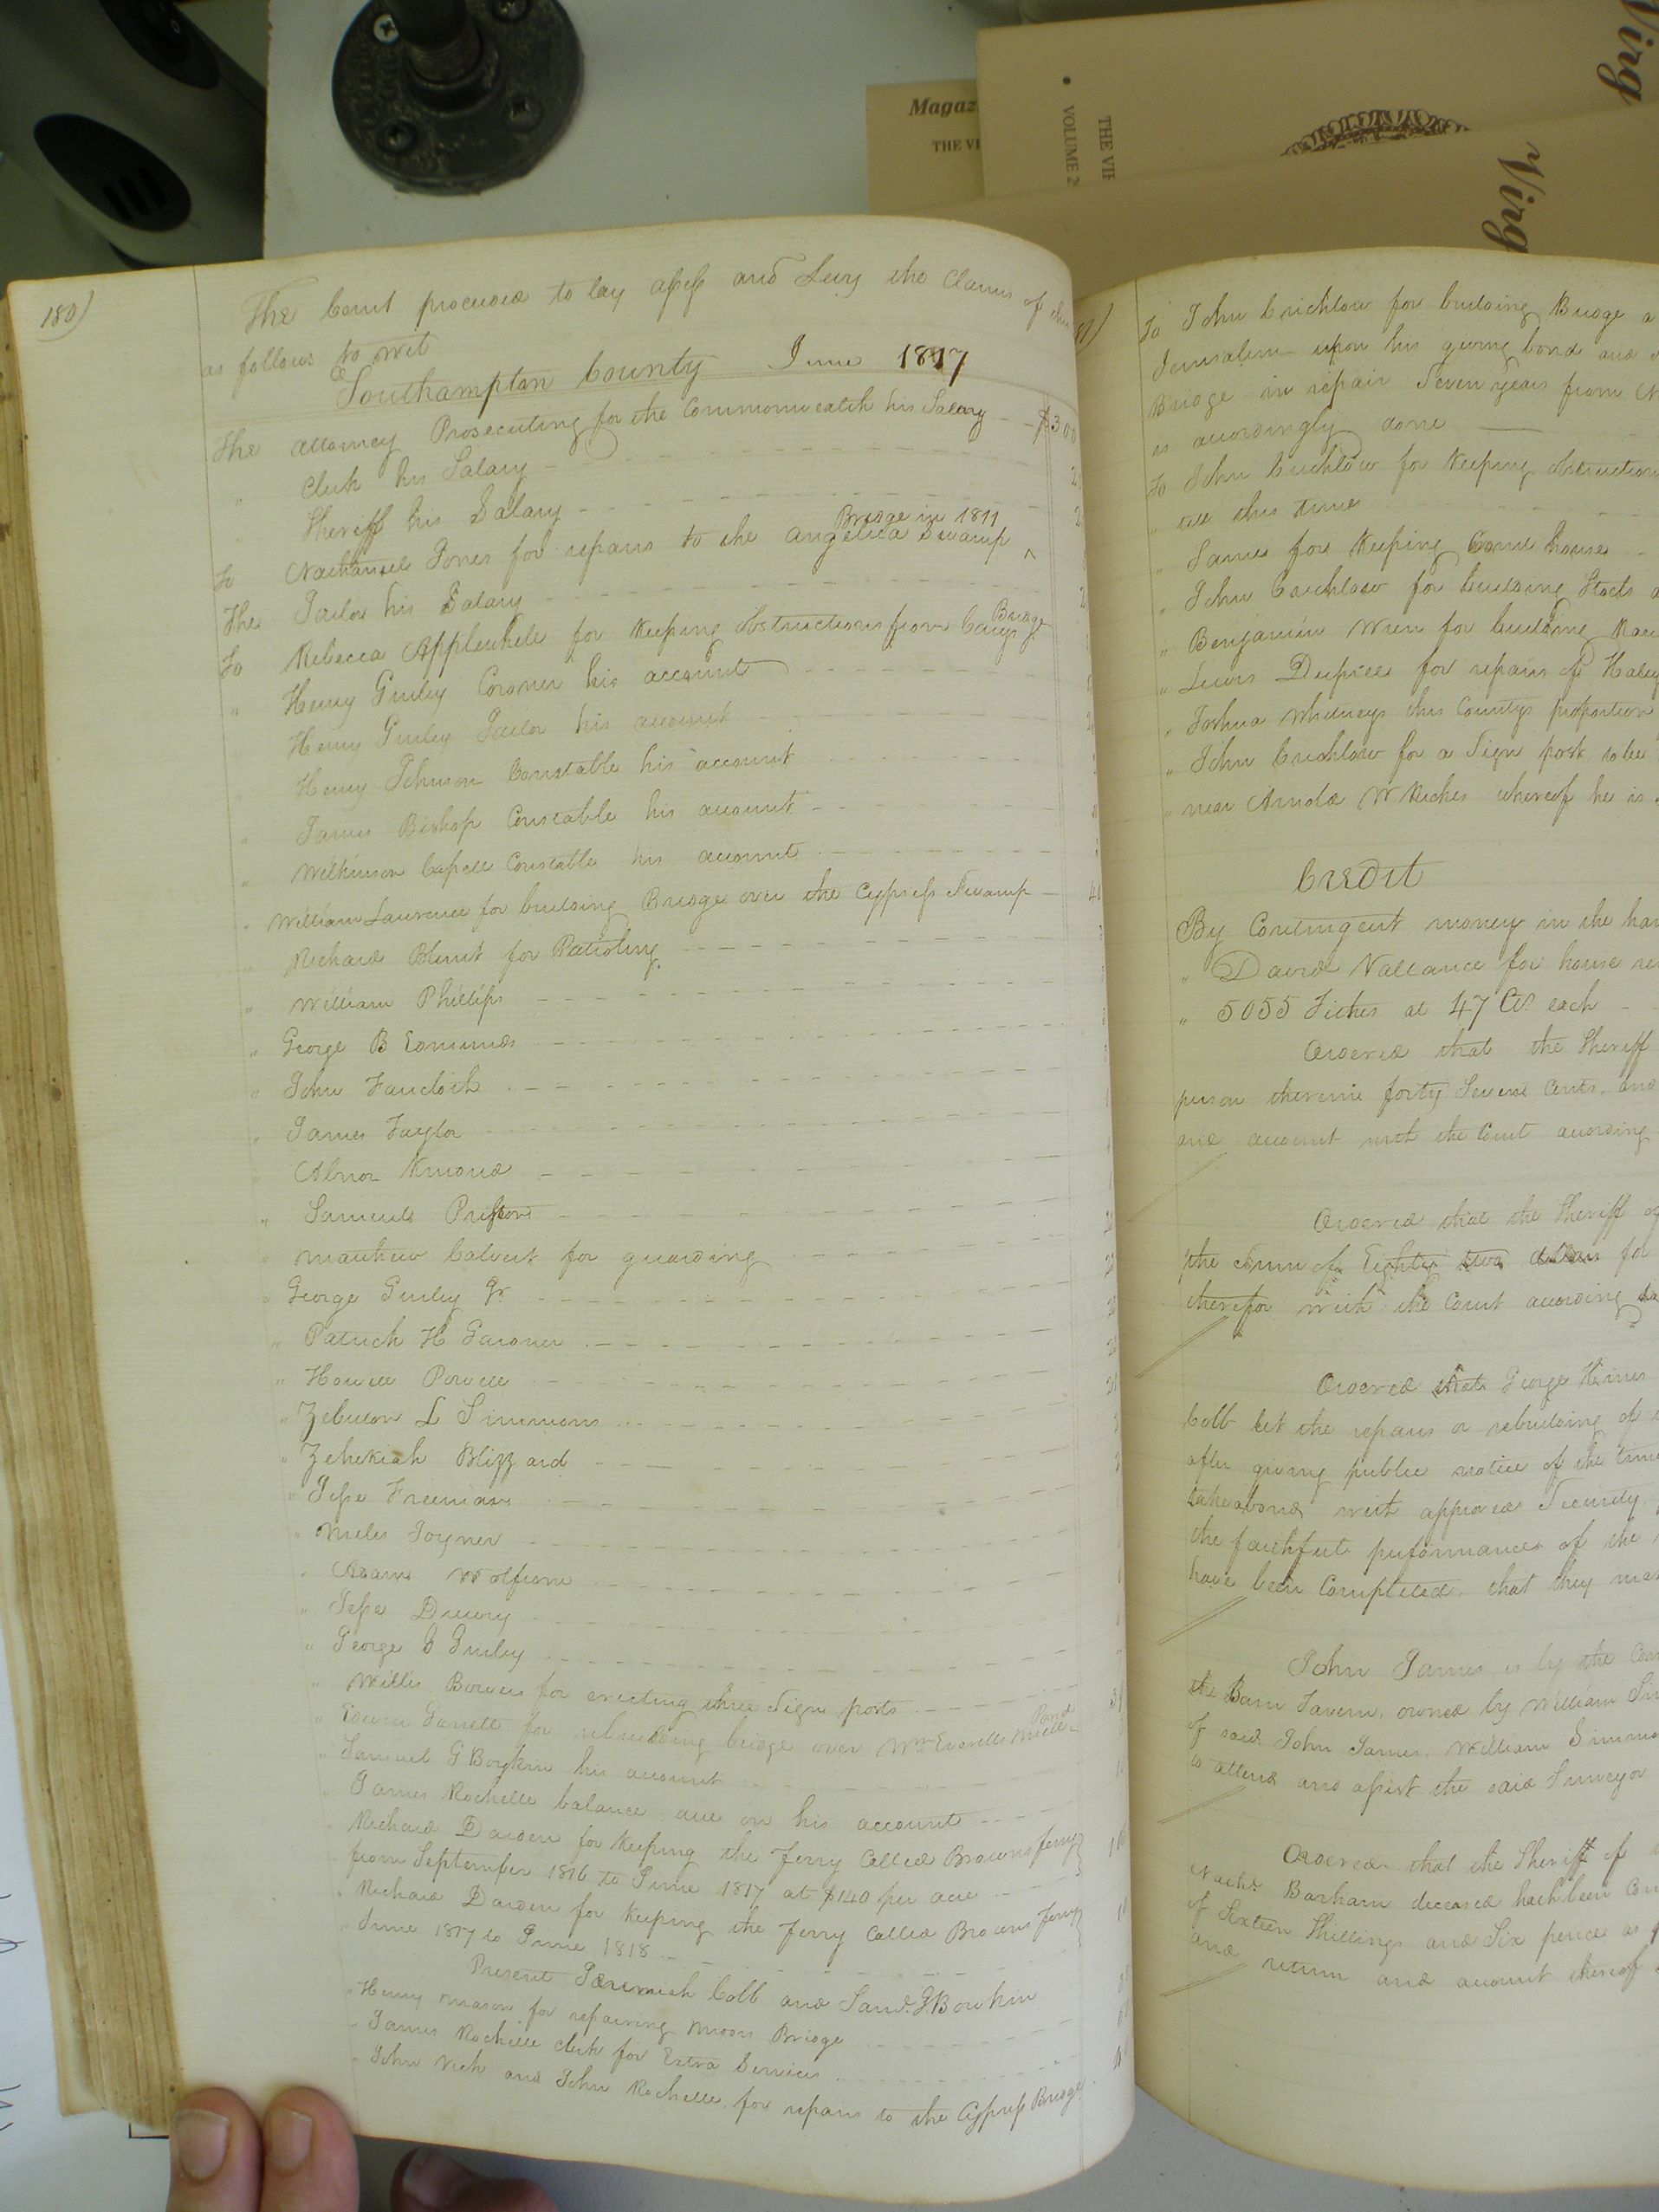 Magaz
THE VI
THE VIR
VOLUME 2
Virg
Virg
180)
The Court proceeded to lay assess and Levy the Claims of
as follows to wit
Southampton County June 1817
The attorney Prosecuting for the Commonwealth his Salary $300
" Clerk his Salary
" Sheriff his Salary
Bridge in 1811
To Nathaniel Jones for repairs to the angelica Swamp ^
The Jailor his Salary
Bridge
To Rebecca Applewhite for Keeping obstructions from Carys
" Henry Gurley Coroner his account
Henry Gurley Jailor his account
" Henry Johnson Constable his account
" James Bishop Constable his account
" Wilkinson Capell Constable his account
" William Laurence for building Bridge over the Cypress Swamp
" Richard Blunt for Patroling
" William Phillips
" George B Edmunds
" John
" James Taylor
" Abner
" Samuel
" Matthew Calvert for guarding
" George Gurley Jr
" Patrick H Gardner
" Howell Powell
" Zebulon L Simmons
" Zehekiah Blizzard
" Jesse Freeman
" Miles Joyner
" Adams
" Jesse Drewry
" George Gurley
" Willis Bowers for erecting three Sign posts
Pond
" Edwin for rebuilding bridge over Wm Everells Mill
" Samuel G Boykin his account
" James Rochelle balance due on his account
" Richard Darden for Keeping the ferry Called Browns ferry
from September 1816 to June 1817 at $140 per
" Richard Darden for Keeping the ferry Called Browns ferry
June 1817 to June 1818
Present Jeremiah Cobb and Saml. G. Boykin
" Henry Mason for repairing Moors Bridge
" James Rochelle clerk for Extra Services
" John Vick and John Rochelle for repairs to the Cypress Bridge
To John Crichlow for building Bridge a
Jerusalem upon his giving bond and
Bridge in repair Seven years from
is accordingly done
To John Crichlow for Keeping obstruction
" till this time
" James for Keeping Court house
" John Crichlow for building Stocks
" Benjamin Wren for building
" Lewis Dupree for repairs of
" Joshua Whitneys this Countys proportion
" John Crichlow for a Sign post to be
" near Arnold W Riches whereof he is
Credit
By Contingent money in the
" David Vallance for house
" 5055 Tithes at 47 Cts. each
Ordered that the Sheriff
person therein forty Seven Cents, and
and account with the Court according
Ordered that the Sheriff of
the Sum of Eighty two dollars for
therefor with the Court according to
Ordered that George Hines
Cobb let the repairs or rebuilding of
after giving public notice of the time
take bond with approved Security
the faithful performance of the
have been Completed, that they
John James is by the
the Barn Tavern, owned by William
of said John James, William
to attend and assist the said Surveyor
Ordered that the Sheriff of
Nathl. Barham deceased hath been
of Sixteen Shillings and Six pence as
and return and account thereof